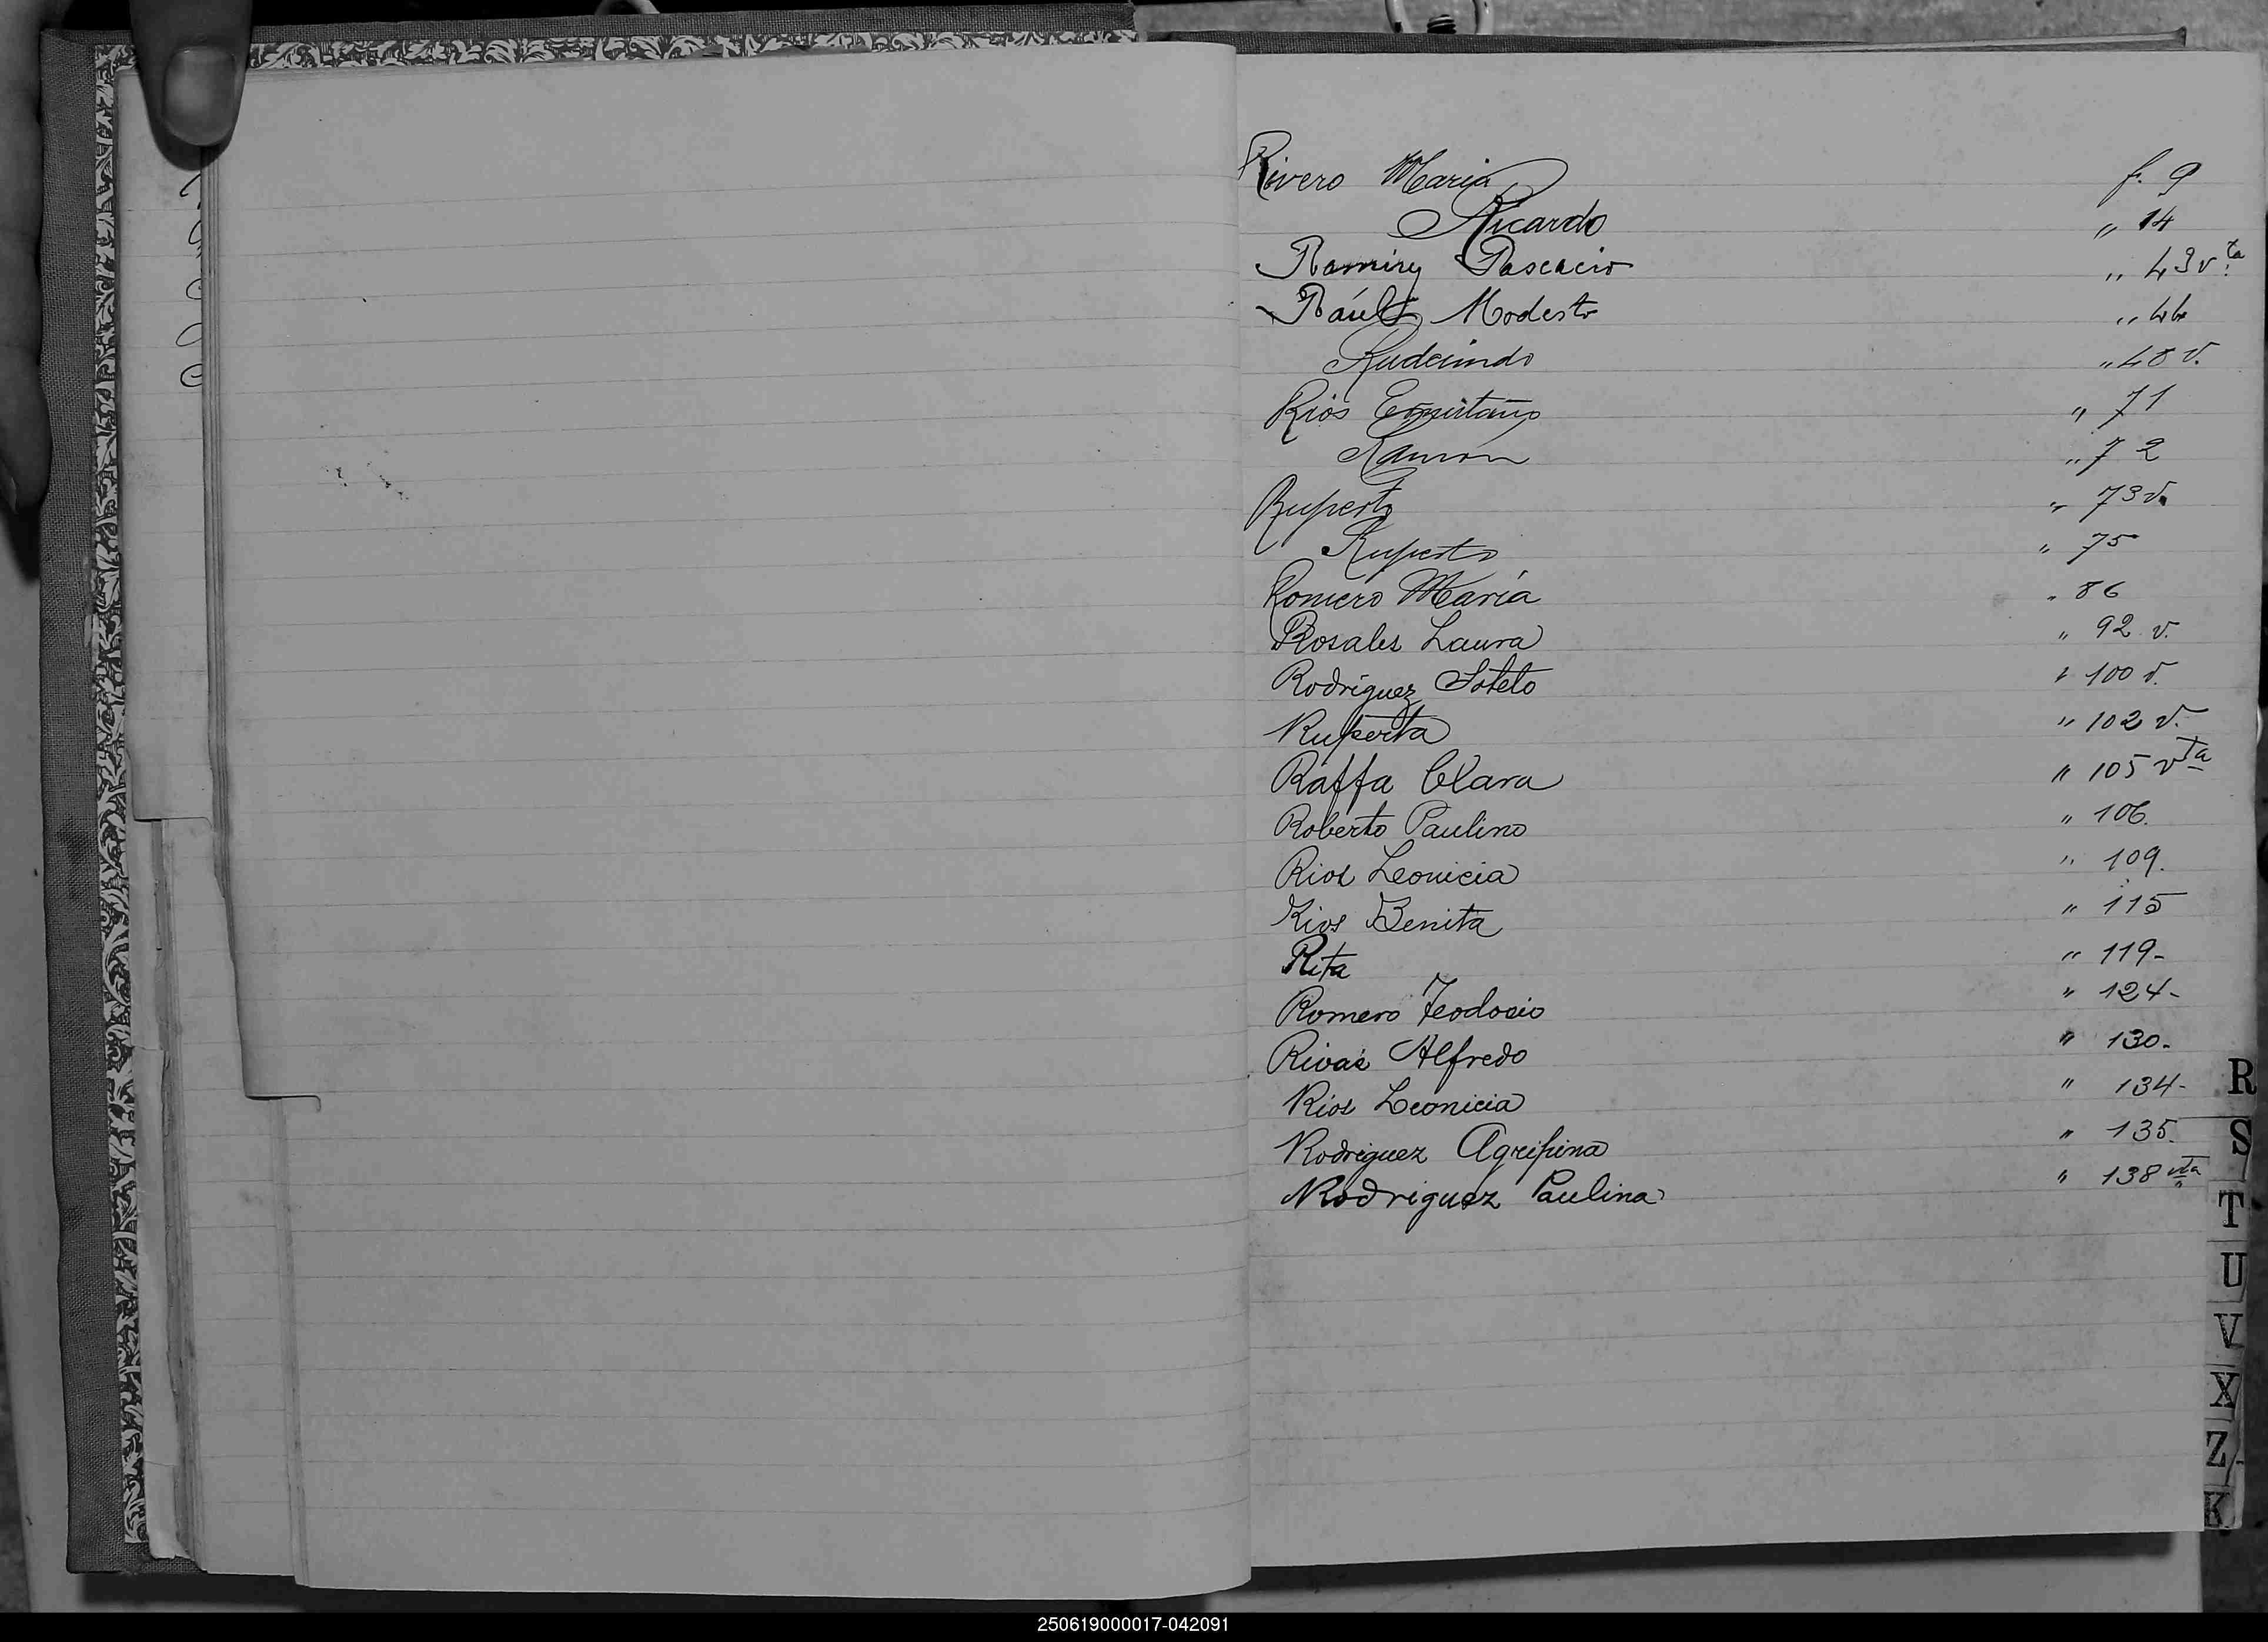 Rivero Maria f. 9
Ricardo " 14
Ramirez Pascacio " 43 v.ta
Raúl Modesto " 44
Rudecindo " 48 v.
Rios " 71
Ramon " 72
Ruperto " 73 v.
Ruperto " 75
Romero María " 86
Rosales Laura " 92 v.
Rodríguez Sotelo " 100 v.
Ruperta " 102 v.
Raffa Clara " 105 vta
Roberto Paulino " 106.
Rios Leonicia " 109.
Rios Benita " 115
Rita " 119-
Romero Teodosio " 124-
Rivas Alfredo " 130-
Rios Leonicia " 134-
Rodriguez Agripina " 135.
Rodriguez Paulina " 138 vta
R
S
T
U
V
X
Z
K
250619000017-042091